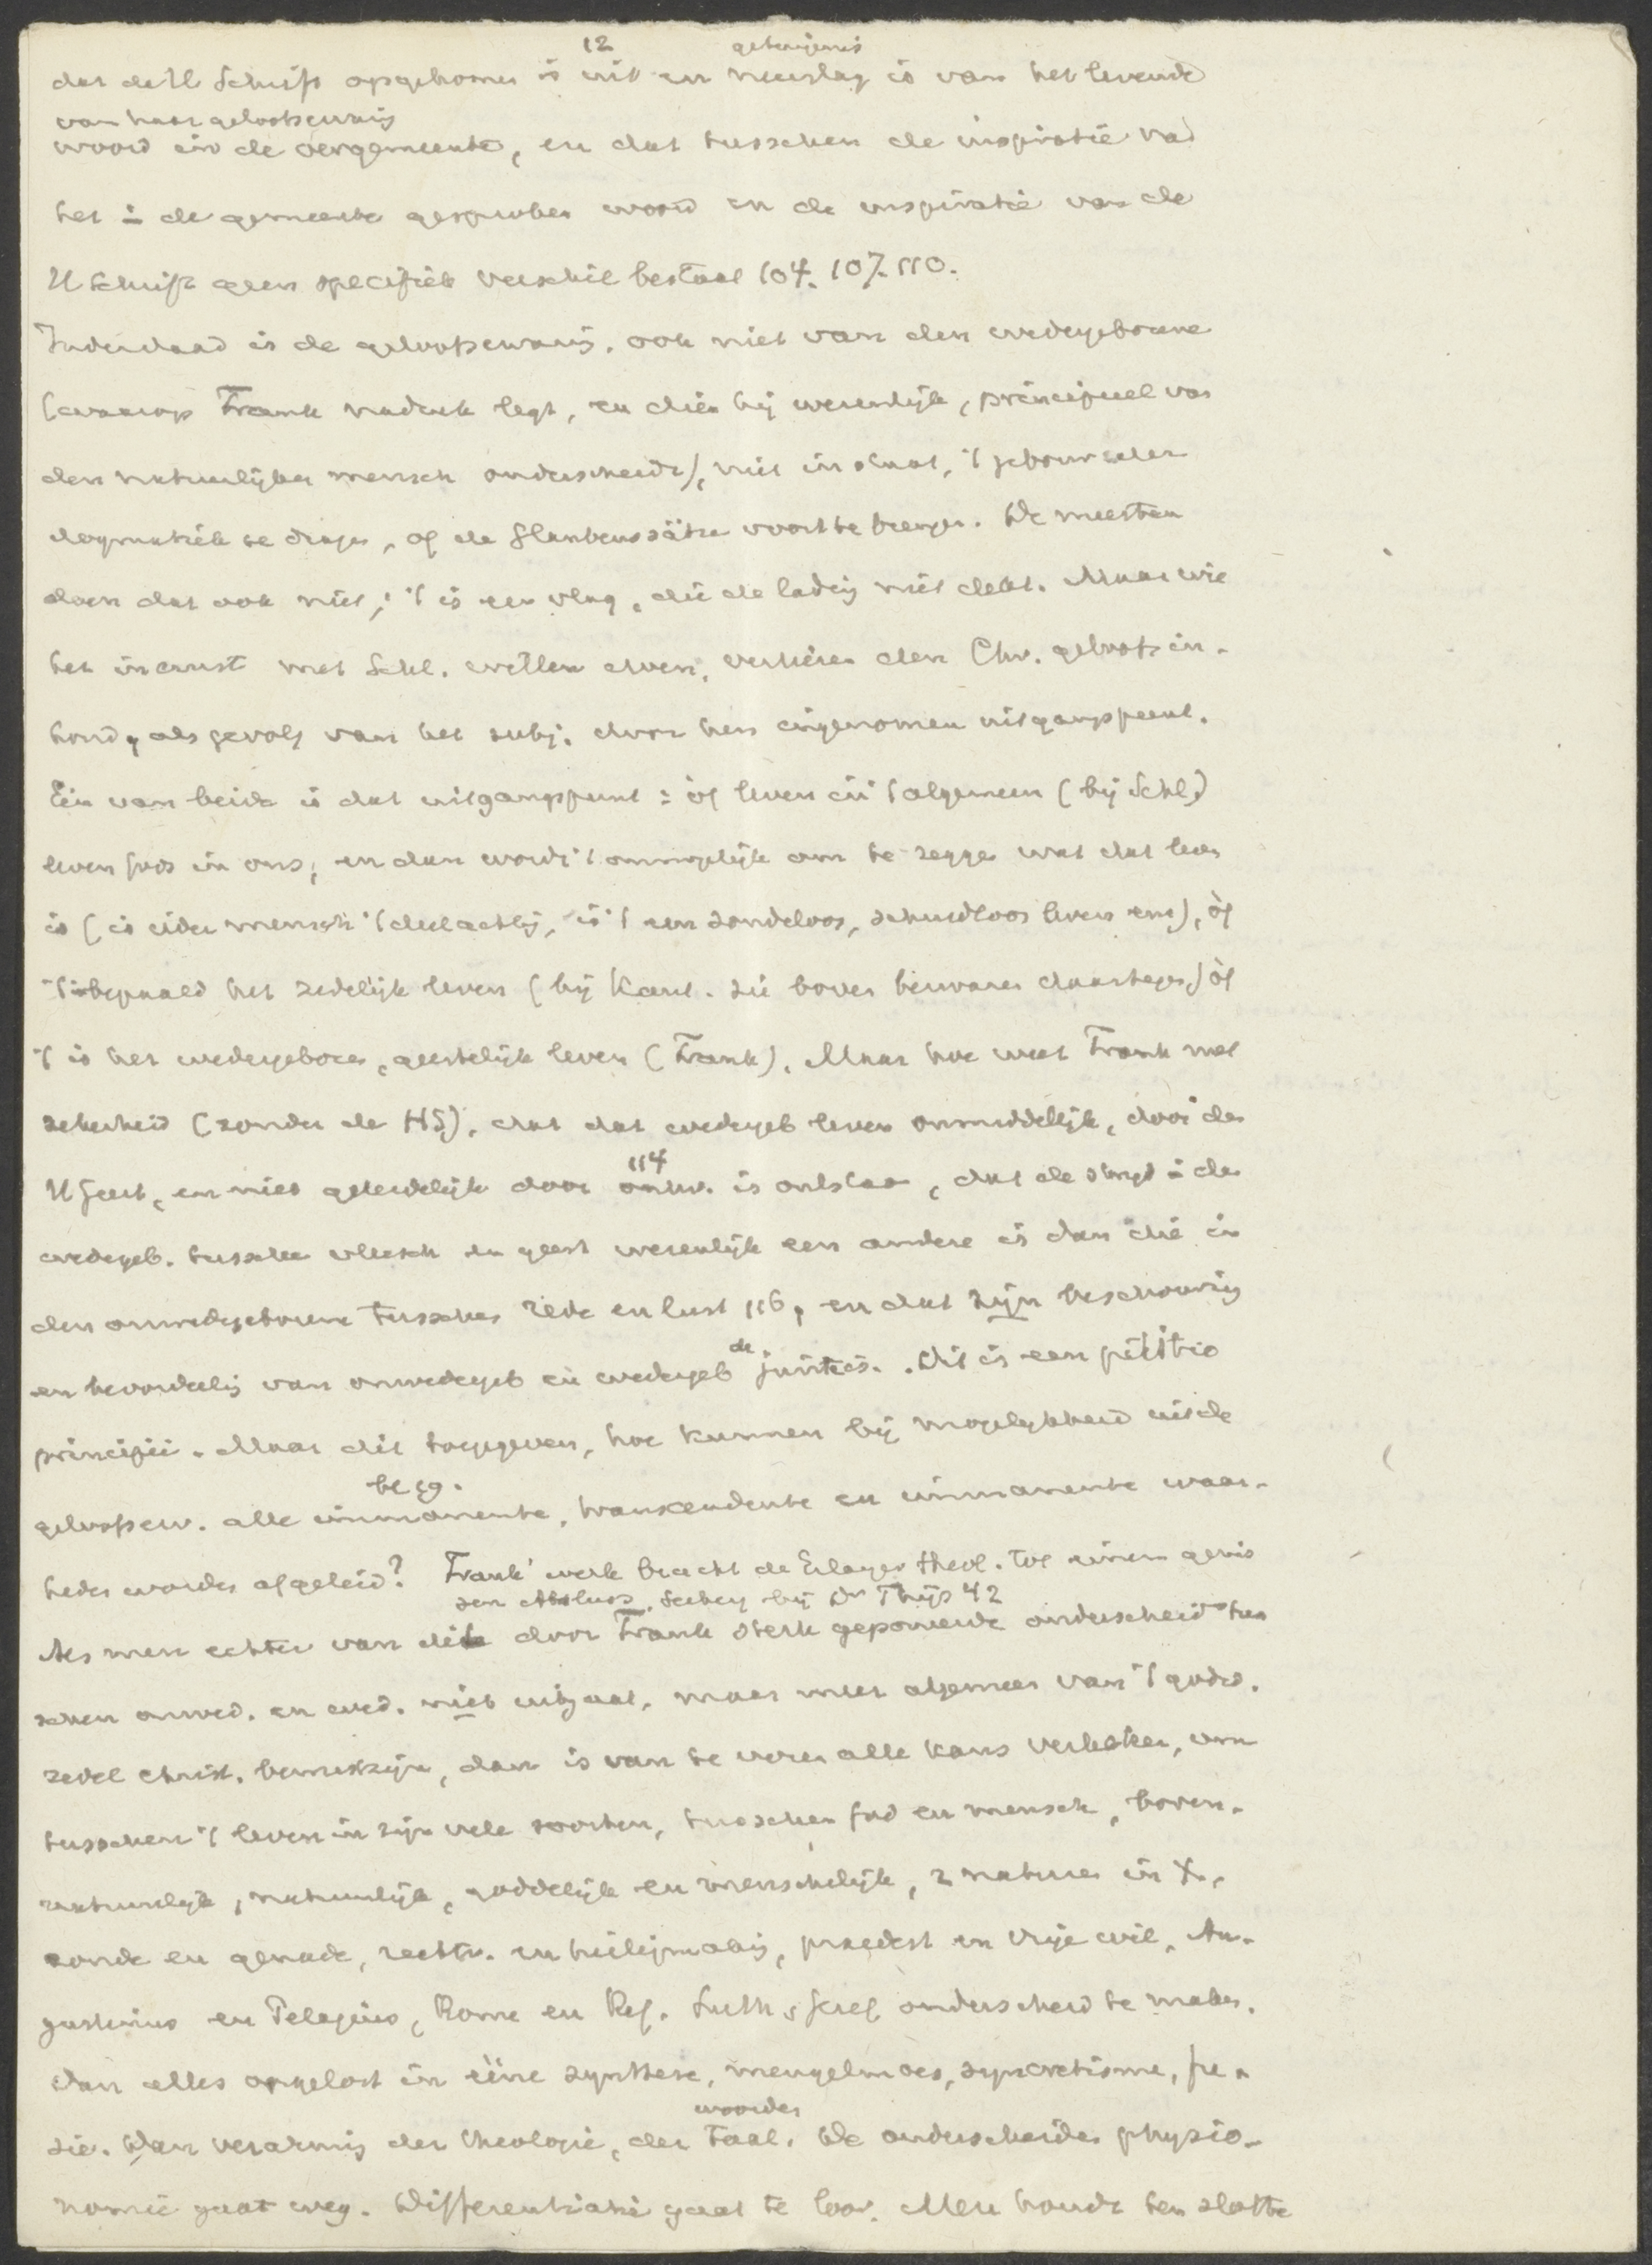 12 getuigenis
dat de H Schrift opgekomen is uit en neerslag is van het levende
van haar geloofservaring
woord in de oergemeente, en dat tusschen de inspiratie van
het in de gemeente gesproken woord en de inspiratie van de
H Schrift geen specifiek verschil bestaat 104. 107. 110.
Inderdaad is de geloofservaring, ook niet van den wedergeborene
(waarop Frank nadruk legt, en dien hij wezenlijk, principieel van
den natuurlijken mensch onderscheidt), niet in staat, 't gebouw der
dogmatiek te dragen, of de Glaubenssätze voort te brengen. De meesten
doen dat ook niet; 't is een vlag, die de lading niet dekt. Maar wie
het in ernst met Schl. willen doen, verliezen den Chr. geloofsin-
houd, als gevolg van het subj. door hen ingenomen uitgangspunt.
Één van beide is dat uitgangspunt: òf leven in 't algemeen (bij Schl.)
leven Gods in ons, en dan wordt 't onmogelijk om te zeggen wat dat leven
is (is ieder mensch 't deelachtig, is 't een zondeloos, schuldloos leven enz), òf
't is bepaald het zedelijk leven (bij Kant. zie boven bezwaren daartegen) òf
't is het wedergeboren, geestelijk leven (Frank). Maar hoe weet Frank met
zekerheid (zonder de HS), dat dat wedergeb leven onmiddellijk, door den
H Geest, en niet geleidelijk door 114 ontw. is ontstaan, dat de strijd in den
wedergeb. tusschen vleesch en geest wezenlijk een andere is dan die in
den onwedergeborene tusschen rede en lust 116, en dat zijn beschouwing
en beoordeeling van onwedergeb en wedergeb de juiste is. Dit is een petitio
principii. Maar dit toegegeven, hoe kunnen bij mogelijkheid uit de
geloofserv. alle immanente, transcendente en immanente waar-
heden worden afgeleid? Frank' werk bracht de Erlanger theol. tot einem gewis
sen Abschluss, Seeberg bij Dr Thijs 42
Als men echter van dit door Frank sterk geponeerde onderscheid tus
schen onwed. en wed. niet uitgaat, maar meer algemeen van 't godsd.
zedel christ. bewustzijn, dan is van te voren alle kans verkeken, om
tusschen 't leven in zijn vele soorten, tusschen God en mensch, boven-
natuurlijk, natuurlijk, goddelijk en menschelijk, 2 naturen in X.,
zonde en genade, rechtv. en heiligmaking, praedest en vrije wil, Au-
gustinus en Pelagius, Rome en Ref. Luth, Geref onderscheid te maken.
Dan alles opgelost in ééne synthese, mengelmoes, syncretisme, fu-
woorden
sie. Dan verarming der theologie, der taal. De onderscheiden physio-
nomie gaat weg. Differentiatie gaat te loor. Men houdt ten slotte